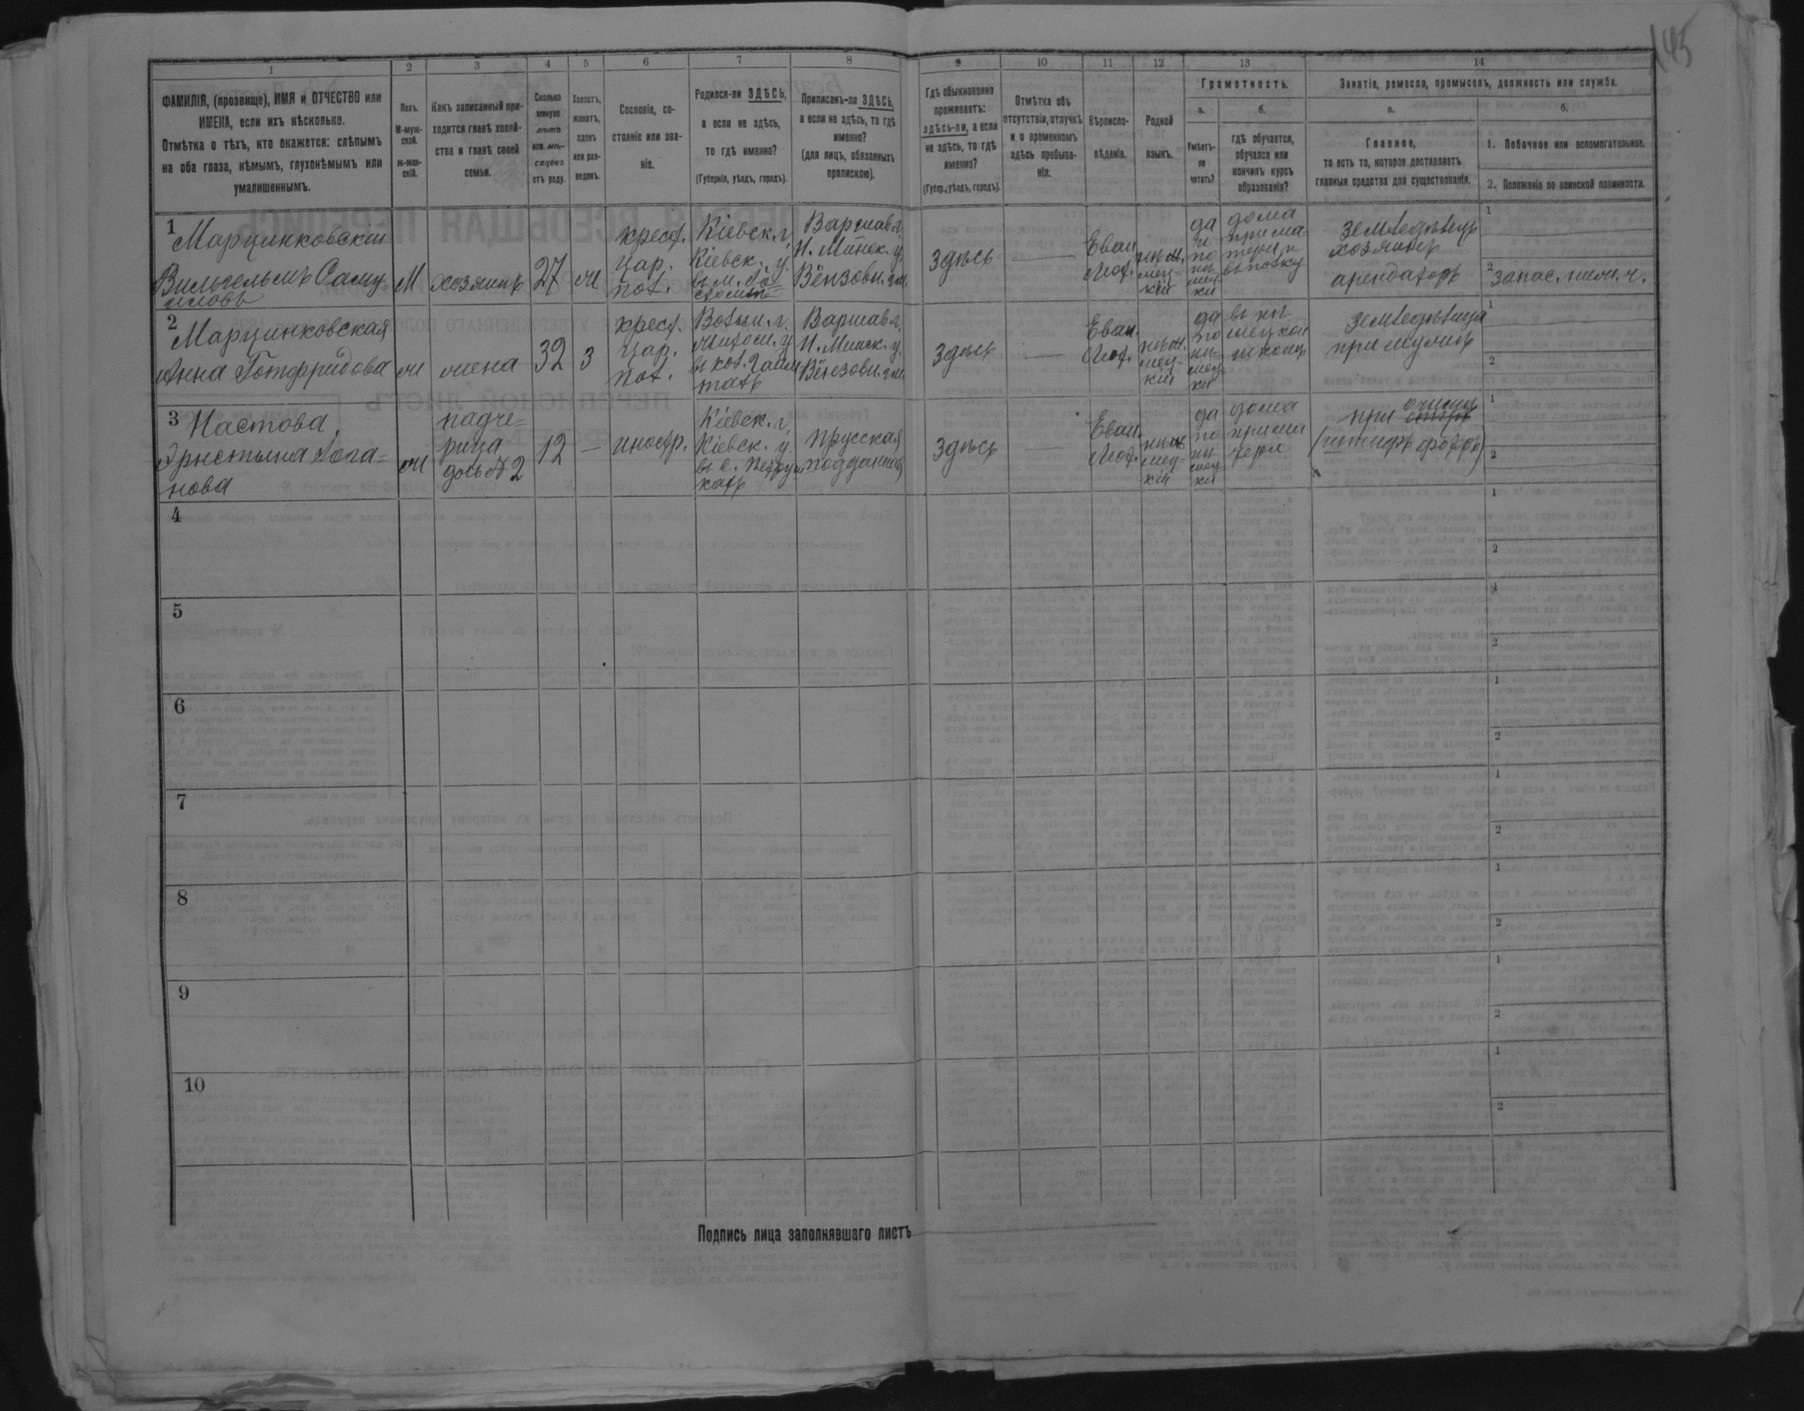 145
1 2 3 4 5 6 7 8 9 10 11 12 13 14
ФАМИЛІЯ, (прозвище), ИМЯ и ОТЧЕСТВО или
ИМЕНА, если ихъ нѣсколько.
Отмѣтка о тѣхъ, кто окажется: слѣпымъ
на оба глаза, нѣмымъ, глухонѣмымъ или
умалишеннымъ.
Полъ.
М-муж-
ской.
ж-жен-
скій.
Какъ записанный при-
ходится главѣ хозяй-
ства и главѣ своей
семьи.
Сколько
минуло
лѣтъ
или мѣ-
сяцевъ
отъ роду.
Холостъ,
женатъ,
вдовъ
или раз-
веденъ.
Сословіе, со-
стояніе или зва-
ніе.
Родился-ли ЗДѢСЬ,
а если не здѣсь,
то гдѣ именно?
(Губернія, уѣздъ, городъ).
Приписанъ-ли ЗДѢСЬ,
а если не здѣсь, то гдѣ
именно?
(для лицъ, обязанныхъ
припискою).
Гдѣ обыкновенно
проживаетъ:
здѣсь-ли, а если
не здѣсь, то гдѣ
именно?
(Губер., уѣздъ, городъ).
Отмѣтка объ
отсутствіи, отлучкѣ
и о временномъ
здѣсь пребыва-
ніи.
Вѣроиспо-
вѣданіе.
Родной
языкъ.
Грамотность.
а.
Умѣетъ-
ли
читать?
б.
Гдѣ обучается,
обучался или
кончилъ курсъ
образованія?
Занятіе, ремесло, промыселъ, должность или служба.
а.
Главное,
то есть то, которое доставляетъ
главныя средства для существованія.
б.
1. Побочное или вспомогательное.
2. Положеніе по воинской повинности.
1 Марцинковскій
Вильгельмъ Саму
иловъ
М
хозяинъ
27
ж
крест.
цар.
пол.
Кіевск. г.
Кіевск. у.
въ м.
Варшав. г.
Н. Минск. у.
здѣсь
Еван.
Лют.
нѣ-
мец-
кій
да
и
по
нѣ
мец
ки
дома
при ма-
тери
земледѣлецъ
хозяинъ
арендаторъ
1
2 запас. ниж. ч.
2
Марцинковская
Анна Готфридова
ж
жена
32
з
крест.
цар.
пол.
Волын. г.
Житом. у.
въ кол.
Варшав. г.
Н. Минск. у.
здѣсь
Еван.
Лют.
нѣ-
мец-
кій
да
по
нѣ
мец
ки
въ нѣ
мецкой
школѣ
земледѣлица
при мужѣ
1
2
3 Настова
Эрнестина Лога-
нова
ж
падче-
рица
дочь № 2
12
—
иностр.
Кіевск. г.
Кіевск. у.
въ с.
прусская
подданная
здѣсь
Еван.
Лют.
нѣ-
мец-
кій
да
по
нѣ
мец
ки
дома
при ма
тери
при отчимѣ
1
2
4
1
2
5
1
2
6
1
2
7
1
2
8
1
2
9
1
2
10
1
2
Подпись лица заполнявшаго листъ